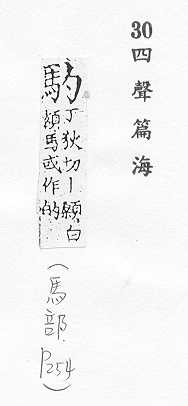 30四聲篇海
馰丁狄切丨顙白
額馬或作的
（馬部 P254）